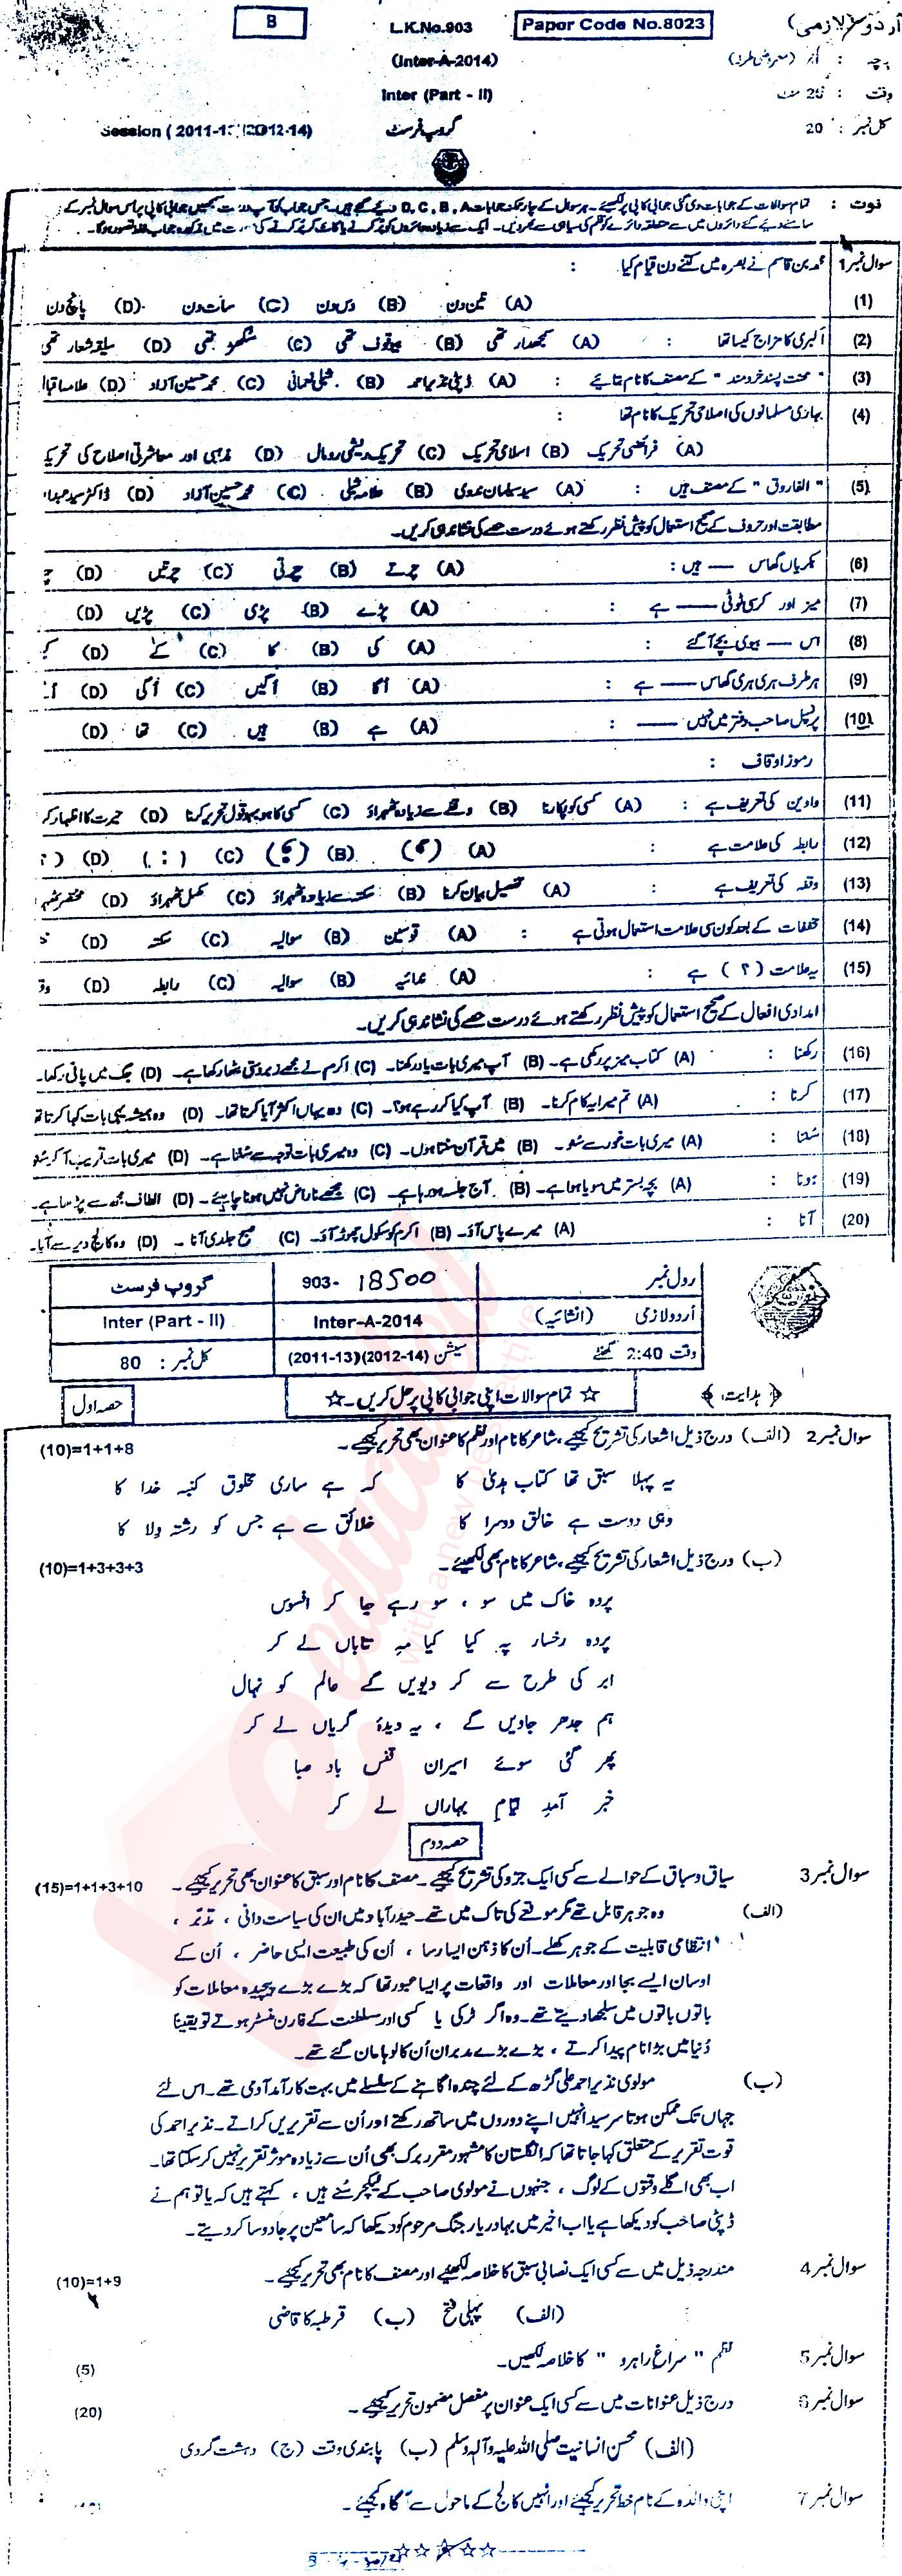 B
L.K.No.903
Paper Code No.8023
اردو (لازمی)
(Inter-A-2014)
پرچہ : (معروضی طرز)
Inter (Part - II)
وقت : 20 منٹ
Session (2011-13)(2012-14)
گروپ فرسٹ
کل نمبر : 20
نوٹ : تمام سوالات کے جوابات دی گئی جوابی کاپی پر لکھیے۔ ہر سوال کے چار ممکنہ جوابات A, B, C, D دیے گئے ہیں۔ جس جواب کو آپ درست سمجھیں جوابی کاپی پر اس سوال نمبر کے
سامنے دیے گئے دائروں میں سے متعلقہ دائرے کو قلم کی سیاہی سے بھر دیں۔ ایک سے زیادہ دائروں کو پُر کرنے یا کاٹ کر پُر کرنے کی صورت میں مذکورہ جواب غلط تصور ہوگا۔
سوال نمبر 1
(1) محمد بن قاسم نے بصرہ میں کتنے دن قیام کیا :
(A) تین دن (B) دس دن (C) سات دن (D) پانچ دن
(2) اکبری کا مزاج کیسا تھا : (A) سمجھدار تھی (B) بیوقوف تھی (C) سگھڑ تھی (D) سلیقہ شعار تھی
(3) " محنت پسند خردمند " کے مصنف کا نام بتائیے : (A) ڈپٹی نذیر احمد (B) شبلی نعمانی (C) محمد حسین آزاد (D) علامہ اقبال
(4) بہاری مسلمانوں کی اصلاحی تحریک کا نام تھا :
(A) فرائضی تحریک (B) اسلامی تحریک (C) تحریک ریشمی رومال (D) مذہبی اور معاشرتی اصلاح کی تحریک
(5) " الفاروق " کے مصنف ہیں : (A) سید سلیمان ندوی (B) علامہ شبلی (C) محمد حسین آزاد (D) ڈاکٹر سید عبدا
مطابقت اور حروف کے صحیح استعمال کو پیش نظر رکھتے ہوئے درست حصے کی نشاندہی کریں۔
(6) بکریاں گھاس —— ہیں : (A) چرتے (B) چرتی (C) چرتیں (D)
(7) میز اور کرسی ٹوٹی —— ہے : (A) پڑے (B) پڑی (C) پڑیں (D)
(8) اس —— بیوی بچے آ گئے : (A) کی (B) کا (C) کے (D)
(9) ہر طرف ہری ہری گھاس —— ہے : (A) اگا (B) اگیں (C) اگی (D)
(10) پرنسپل صاحب دفتر میں نہیں —— : (A) ہے (B) ہیں (C) تھا (D)
رموز اوقاف :
(11) واوین کی تعریف ہے : (A) کسی کو پکارنا (B) وقفے سے زیادہ ٹھہراؤ (C) کسی کا ہو بہو قول تحریر کرنا (D) حیرت کا اظہار کر
(12) رابطہ کی علامت ہے : (A) (،) (B) (؛) (C) (:) (D) (
(13) وقفہ کی تعریف ہے : (A) تفصیل بیان کرنا (B) سکتہ سے زیادہ ٹھہراؤ (C) مکمل ٹھہراؤ (D) مختصر ٹھہر
(14) مخففات کے بعد کون سی علامت استعمال ہوتی ہے : (A) قوسین (B) سوالیہ (C) سکتہ (D)
(15) یہ علامت ( ؟ ) ہے : (A) ندائیہ (B) سوالیہ (C) رابطہ (D)
امدادی افعال کے صحیح استعمال کو پیش نظر رکھتے ہوئے درست حصے کی نشاندہی کریں۔
(16) رکھنا : (A) کتاب میز پر رکھی ہے۔ (B) آپ میری بات یاد رکھنا۔ (C) اکرم نے مجھے زبردستی بٹھا رکھا ہے۔ (D) جگ میں پانی رکھا۔
(17) کرنا : (A) تم میرا یہ کام کرنا۔ (B) آپ کیا کر رہے ہو؟۔ (C) وہ یہاں اکثر آیا کرتا تھا۔ (D) وہ ہمیشہ یہی بات کہا کرتا تھ
(18) سُننا : (A) میری بات غور سے سنو۔ (B) میں قرآن سنتا ہوں۔ (C) وہ میری بات توجہ سے سُنتا ہے۔ (D) میری بات قریب آ کر سنو
(19) ہونا : (A) بچہ بستر میں سویا ہوا ہے۔ (B) آج جلسہ ہو رہا ہے۔ (C) مجھے ناراض نہیں ہونا چاہیے۔ (D) الطاف مجھ سے بڑا ہے۔
(20) آنا : (A) میرے پاس آؤ۔ (B) اکرم کو سکول چھوڑ آؤ۔ (C) صبح جلدی آنا۔ (D) وہ کالج دیر سے آیا۔
رول نمبر 903- 18500 گروپ فرسٹ
اُردو لازمی (انشائیہ) Inter-A-2014 Inter (Part - II)
وقت 2:40 گھنٹے سیشن (2011-13)(2012-14) کل نمبر : 80
﴿ ہدایت ﴾ ☆ تمام سوالات اپنی جوابی کاپی پر حل کریں۔ ☆ حصہ اول
سوال نمبر 2 (الف) درج ذیل اشعار کی تشریح کیجیے، شاعر کا نام اور نظم کا عنوان بھی تحریر کیجیے۔ (10)=1+1+8
یہ پہلا سبق تھا کتاب ہدیٰ کا کہ ہے ساری مخلوق کنبہ خدا کا
وہی دوست ہے خالق دوسرا کا خلائق سے ہے جس کو رشتہ ولا کا
(ب) درج ذیل اشعار کی تشریح کیجیے، شاعر کا نام بھی لکھیئے۔ (10)=1+3+3+3
پردہ خاک میں سو ، سو رہے جا کر افسوس
پردہ رخسار پہ کیا کیا مہِ تاباں لے کر
ابر کی طرح سے کر دیویں گے عالم کو نہال
ہم جدھر جاویں گے ، یہ دیدۂ گریاں لے کر
پھر گئی سوئے اسیران قفس باد صبا
خبر آمدِ ایام بہاراں لے کر
حصہ دوم
سوال نمبر 3 سیاق و سباق کے حوالے سے کسی ایک جزو کی تشریح کیجیے۔ مصنف کا نام اور سبق کا عنوان بھی تحریر کیجیے۔ (15)=1+1+3+10
(الف) وہ جوہر قابل تھے مگر موقعے کی تاک میں تھے۔ حیدرآباد میں ان کی سیاست دانی ، تدبّر ،
انتظامی قابلیت کے جوہر کھلے۔ اُن کا ذہن ایسا رسا ، اُن کی طبیعت ایسی حاضر ، اُن کے
اوسان ایسے بجا اور معاملات اور واقعات پر ایسا عبور تھا کہ بڑے بڑے پیچیدہ معاملات کو
باتوں باتوں میں سلجھا دیتے تھے۔ وہ اگر ٹرکی یا کسی اور سلطنت کے فارن منسٹر ہوتے تو یقیناً
دُنیا میں بڑا نام پیدا کرتے ، بڑے بڑے مدبران اُن کا لوہا مان گئے تھے۔
(ب) مولوی نذیر احمد علی گڑھ کے لئے چندہ اگاہنے کے سلسلے میں بہت کارآمد آدمی تھے۔ اس لئے
جہاں تک ممکن ہوتا سرسید انہیں اپنے دوروں میں ساتھ رکھتے اور اُن سے تقریریں کراتے۔ نذیر احمد کی
قوت تقریر کے متعلق کہا جاتا تھا کہ انگلستان کا مشہور مقرر برک بھی اُن سے زیادہ موثر تقریر نہیں کر سکتا تھا۔
اب بھی اگلے وقتوں کے لوگ ، جنہوں نے مولوی صاحب کے لیکچر سُنے ہیں ، کہتے ہیں کہ یا تو ہم نے
ڈپٹی صاحب کو دیکھا ہے یا اب اخیر میں بہادر یار جنگ مرحوم کو دیکھا کہ سامعین پر جادو سا کر دیتے۔
سوال نمبر 4 مندرجہ ذیل میں سے کسی ایک نصابی سبق کا خلاصہ لکھیئے اور مصنف کا نام بھی تحریر کیجیے۔ (10)=1+9
(الف) پہلی فتح (ب) قرطبہ کا قاضی
سوال نمبر 5 نظم " سراغ راہرو " کا خلاصہ لکھیں۔ (5)
سوال نمبر 6 درج ذیل عنوانات میں سے کسی ایک عنوان پر مفصل مضمون تحریر کیجیے۔ (20)
(الف) محسن انسانیت صلی اللہ علیہ وآلہ وسلم (ب) پابندی وقت (ج) دہشت گردی
سوال نمبر 7 اپنی والدہ کے نام خط تحریر کیجیئے اور انہیں کالج کے ماحول سے آگاہ کیجیئے۔
☆☆☆☆☆